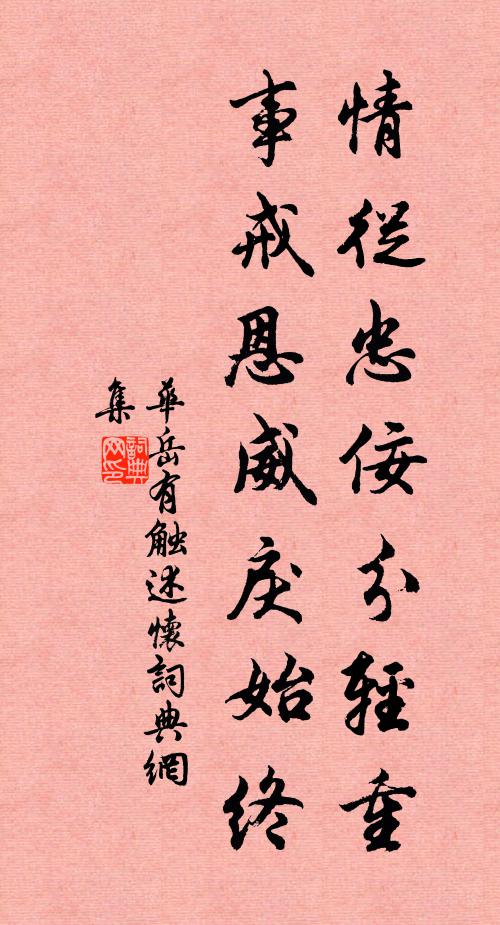 情從忠佞分輕重
事戒恩威戾始終
華岳有触述懷詞典網
集
詞典
网印